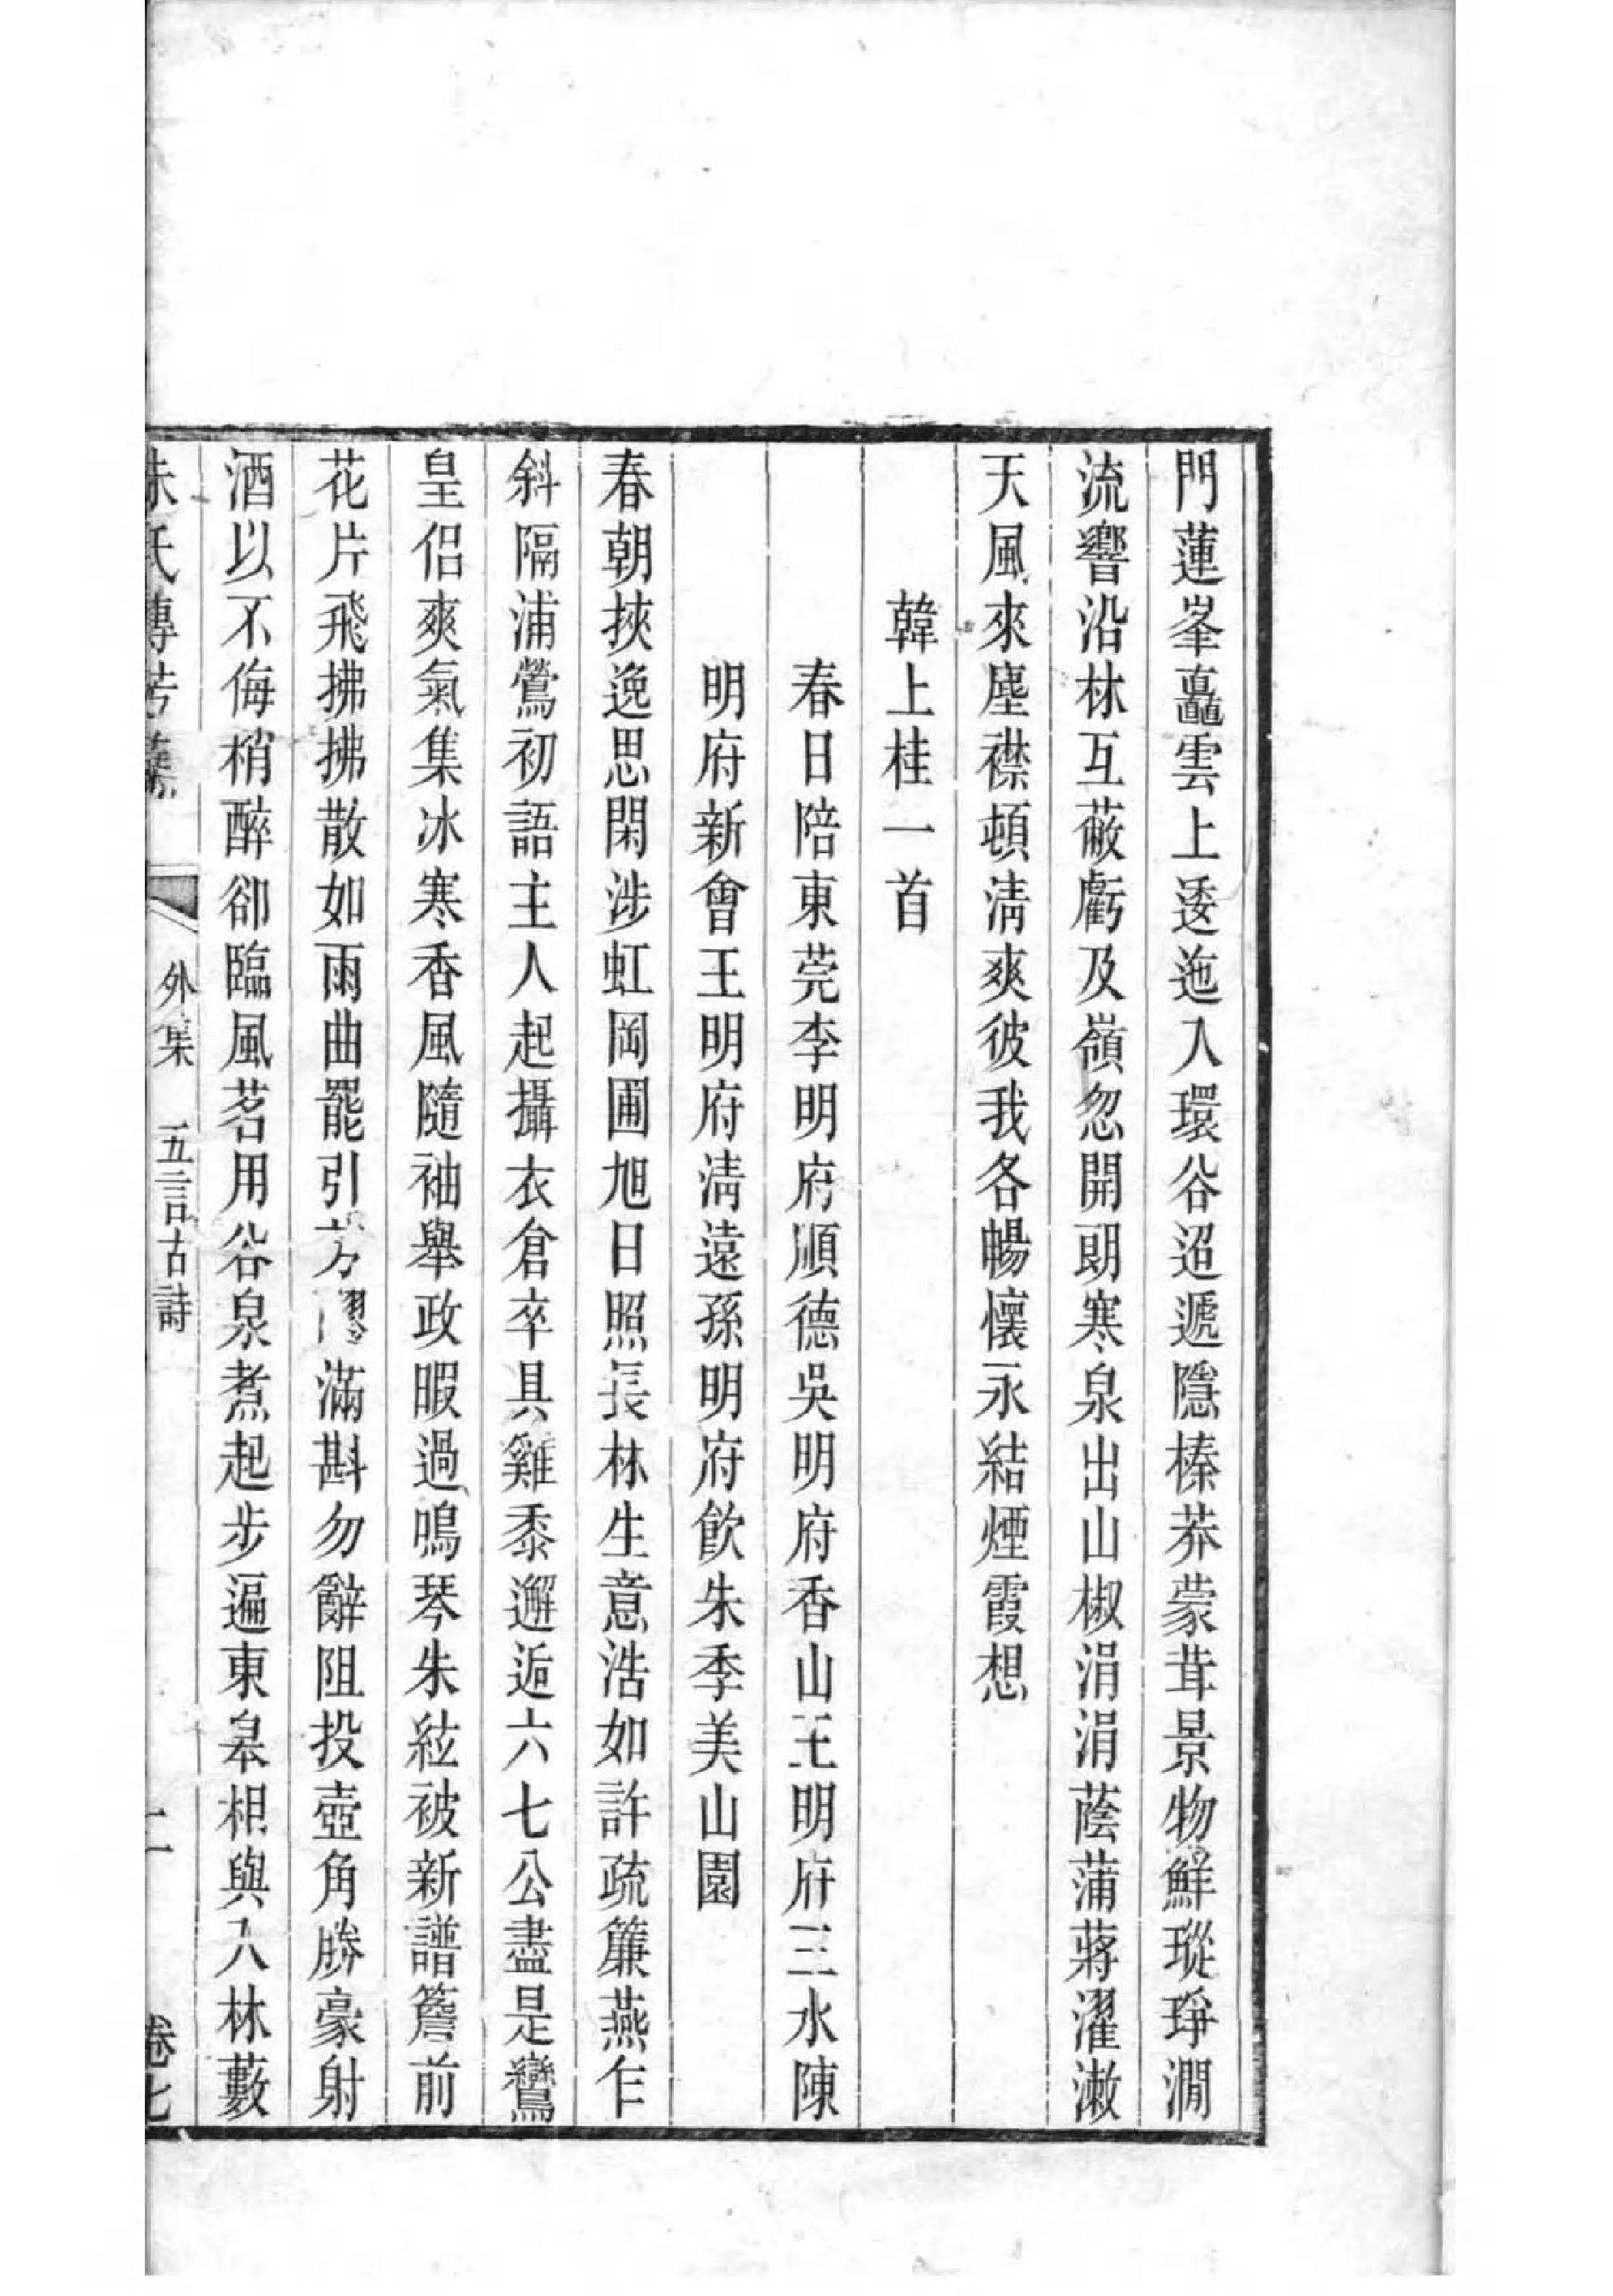 門蓮峯矗雲上逶迤入環谷迢遞隱榛莽蒙茸景物鮮瑽琤澗
流響沿林互蔽虧及嶺忽開朗寒泉出山椒涓涓蔭蒲蔣濯漱
天風來塵襟頓清爽彼我各暢懷永結煙霞想
韓上桂一首
春日陪東莞李明府順德吳明府香山王明府三水陳
明府新會王明府清遠孫明府飲朱季美山園
春朝挾逸思閑涉虹岡圃旭日照長林生意浩如許疏簾燕乍
斜隔浦鶯初語主人起攝衣倉卒具雞黍邂逅六七公盡是鸞
皇侶爽氣集冰寒香風隨袖舉政暇過鳴琴朱絃被新譜簷前
花片飛拂拂散如雨曲罷引方滿斟勿辭阻投壺角勝豪射
酒以不侮梢醉卻臨風茗用谷泉煮起步遍東皋相與入林藪
朱氏傳芳集 外集 五言古詩 卷七